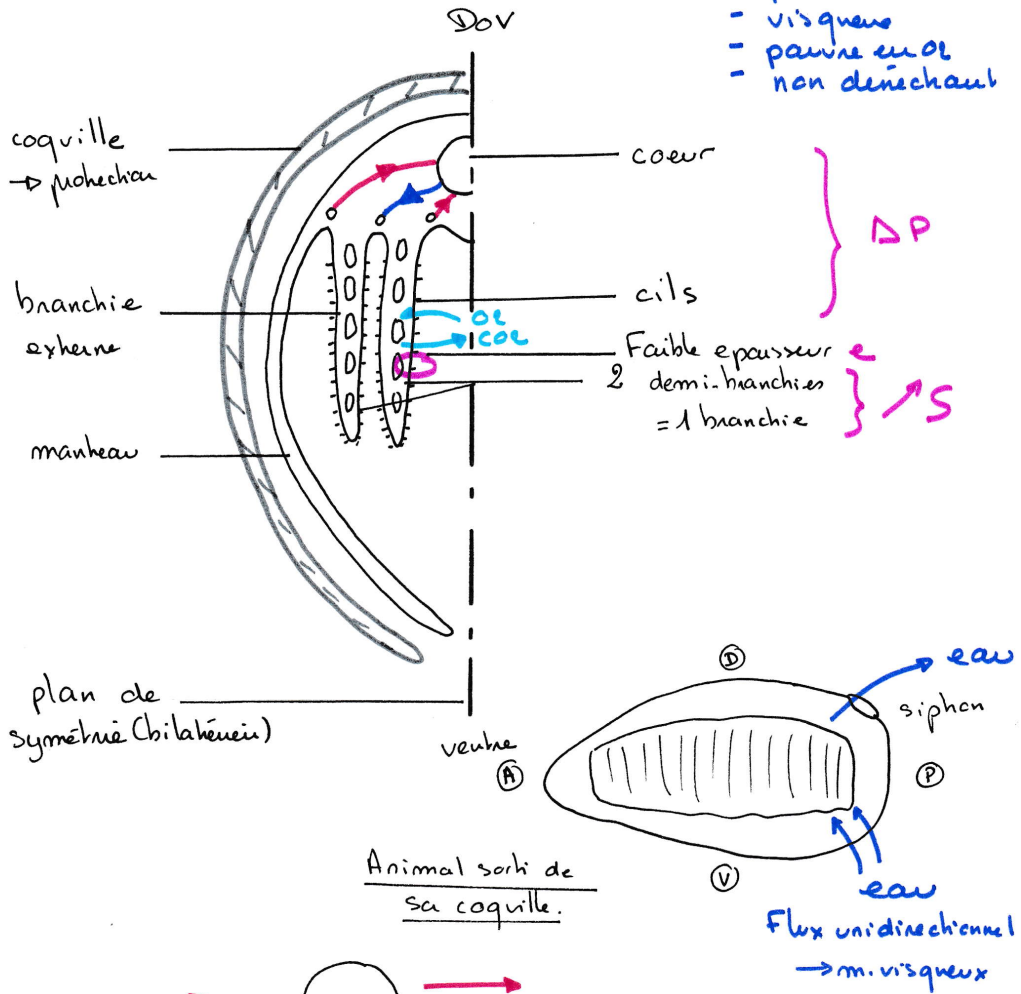 Dos
- visqueux
- pauvre en O2
- non desséchant
coquille
→ protection
coeur
ΔP
branchie
externe
cils
O2
CO2
Faible epaisseur e
2 demi-branchies
= 1 branchie
↗S
manteau
plan de
symétrie (bilatérien)
ventre
D
eau
siphon
A
P
V
Animal sorti de
sa coquille.
eau
Flux unidirectionnel
→ m. visqueux